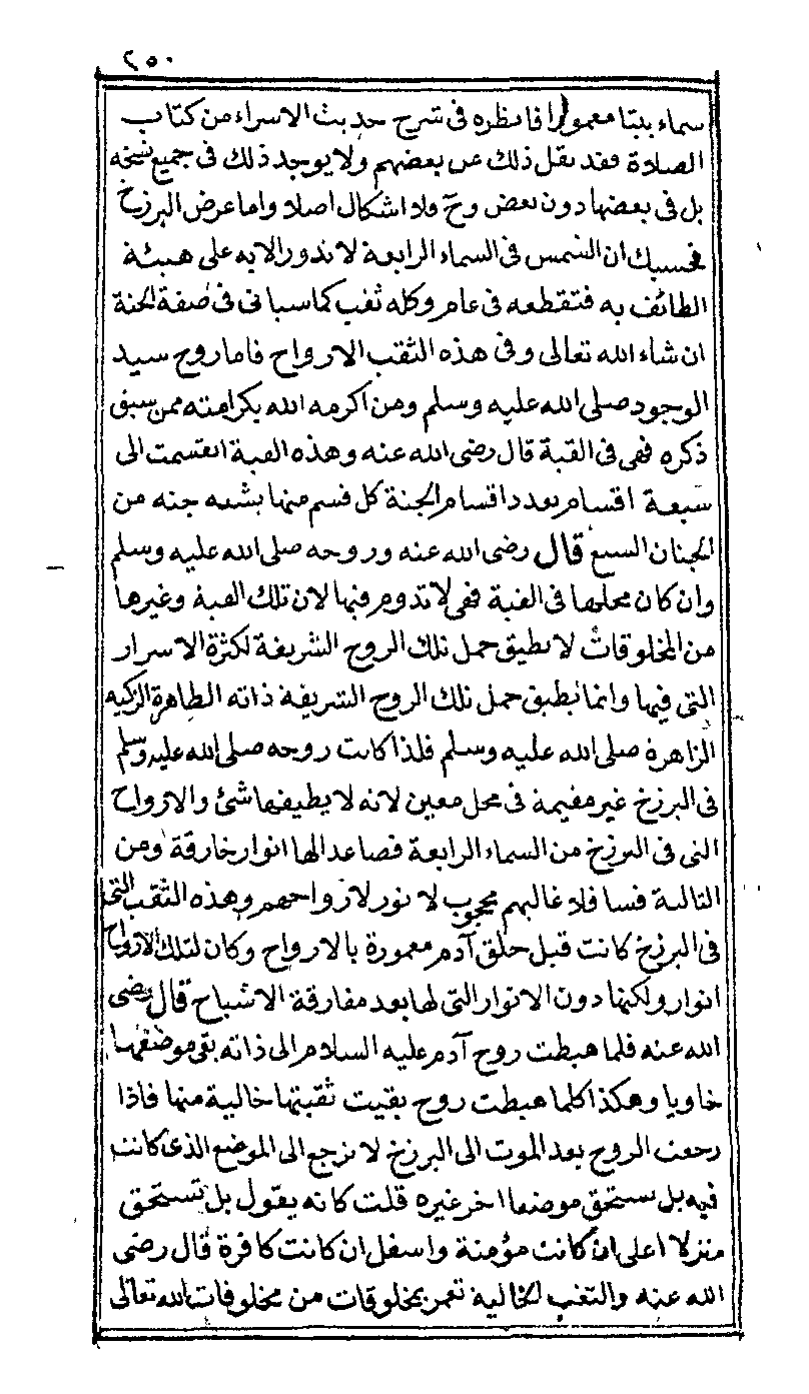 ٢٥٠
سماء بيتا معمورا فانظره فى شرح حديث الاسراء من كتاب
الصلاة فقد نقل ذلك عن بعضهم ولا يوجد ذلك فى جميع نسخه
بل فى بعضها دون بعض وح فلا اشكال اصلا واما عرض البرزخ
فحسبك ان الشمس فى السماء الرابعة لا تدور الا به على هيئة
الطائف به فتقطعه فى عام وكله ثقب كما سياتى فى صفة الجنة
ان شاء الله تعالى وفى هذه الثقب الارواح فاما روح سيد
الوجود صلى الله عليه وسلم ومن اكرمه الله بكرامته ممن سبق
ذكره فهى فى القبة قال رضى الله عنه وهذه القبة انقسمت الى
سبعة اقسام بعدد اقسام الجنة كل قسم منها يشبه جنه من
الجنان السبع قال رضى الله عنه وروحه صلى الله عليه وسلم
وان كان محلها فى القبة فهى لا تدوم فيها لان تلك القبة وغيرها
من المخلوقات لا يطيق حمل تلك الروح الشريفة لكثرة الاسرار
التى فيها وانما يطيق حمل تلك الروح الشريفة ذاته الطاهرة الزكيه
الزاهرة صلى الله عليه وسلم فلذا كانت روحه صلى الله عليه وسلم
فى البرزخ غير مقيمة فى محل معين لانه لا يطيقها شئ والارواح
التى فى البرزخ من السماء الرابعة فصاعدا لها انوار خارقة ومن
الثالثة فسافلا غالبهم محجوب لا نور لارواحهم وهذه الثقب التى
فى البرزخ كانت قبل خلق آدم معمورة بالارواح وكان لتلك الارواح
انوار ولكنها دون الانوار التى لها بعد مفارقة الاشباح قال رضى
الله عنه فلما هبطت روح آدم عليه السلام الى ذاته بقى موضعها
خاويا وهكذا كلما هبطت روح بقيت ثقبتها خالية منها فاذا
رجعت الروح بعد الموت الى البرزخ لا ترجع الى الموضع الذى كانت
فيه بل تستحق موضعا اخر غيره قلت كانه يقول بل تستحق
منزلا اعلى ان كانت مؤمنة واسفل ان كانت كافرة قال رضى
الله عنه والثقب الخالية تعمر بمخلوقات من مخلوقات الله تعالى